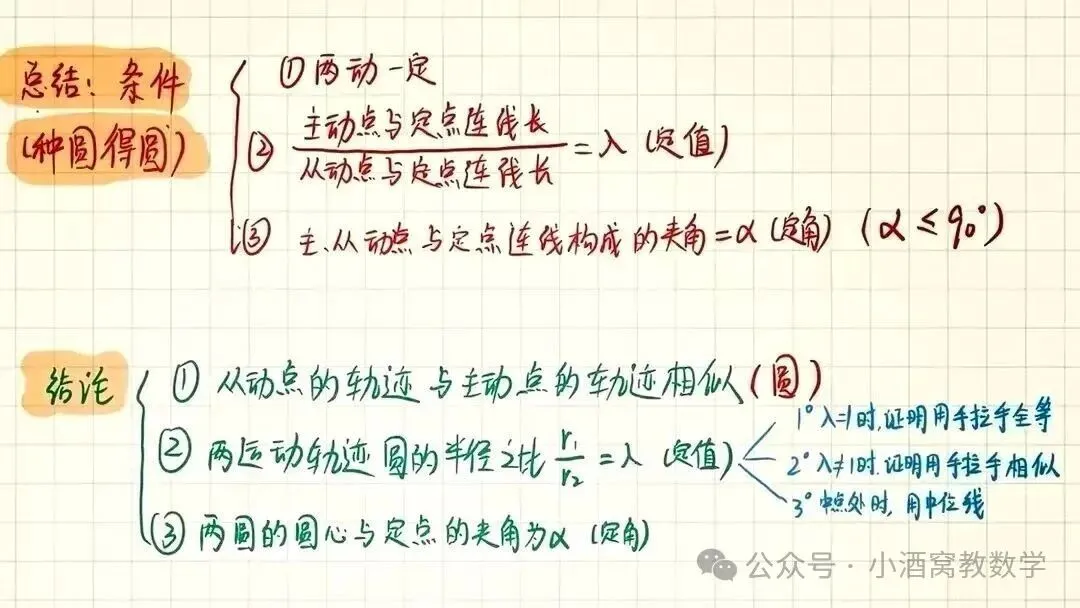 总结：条件
(种圆得圆)
①两动一定
② 主动点与定点连线长/从动点与定点连线长 = λ (定值)
③ 主、从动点与定点连线构成的夹角=α (定角) (α≤90°)
结论
① 从动点的轨迹与主动点的轨迹相似(圆)
② 两运动轨迹圆的半径之比 r₁/r₂ = λ (定值)
1° λ=1时,证明用手拉手全等
2° λ≠1时.证明用手拉手相似
3° 中点处时,用中位线
③ 两圆的圆心与定点的夹角为α (定角)
公众号 · 小酒窝教数学